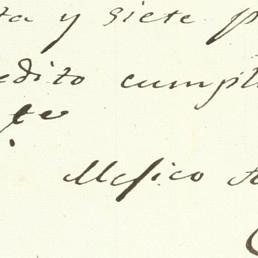 ta y siete p
edito cumpl
te
Mesico A